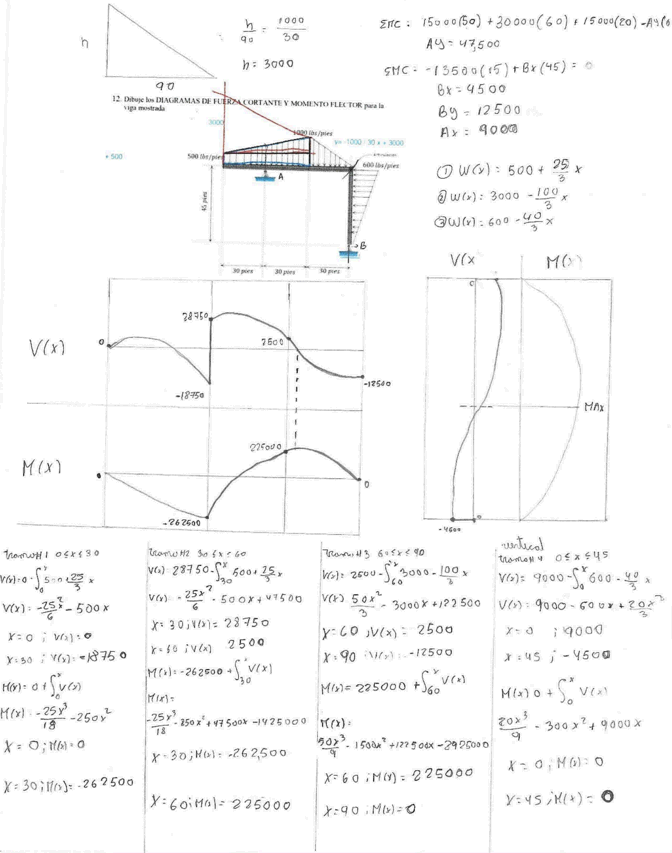 h
90
h/90 = 1000/30
h = 3000
ΣMC: 15000(50) + 30000(60) + 15000(20) - AY(6
AY = 47,500
ΣMC = -13500(15) + Bx(45) = 0
Bx = 4500
By = 12500
Ax = 9000
① W(x) = 500 + 25/3 x
② W(x) = 3000 - 100/3 x
③ W(x) = 600 - 40/3 x
12. Dibuje los DIAGRAMAS DE FUERZA CORTANTE Y MOMENTO FLECTOR para la
viga mostrada
3000
1000 lbs/pies
y= -1000 / 30 x + 3000
+ 500
500 lbs/pies
600 lbs/pies
A
45 pies
B
30 pies
30 pies
30 pies
V(x
M(x)
V(x)
0
28750
2500
-18750
-12500
M(x)
225000
0
-262500
0
MAx
-4500
Tramo#1 0≤x≤30
V(x)=0-∫0^x 500+25/3 x
V(x)= -25x²/6 - 500x
x=0 ; V(x)=0
x=30 ; V(x)=-18750
M(x)=0+∫0^x V(x)
M(x)= -25x³/18 - 250x²
X=0; M(x)=0
X=30; M(x)=-262500
Tramo#2 30≤x≤60
V(x)= 28750-∫30^x 500+25/3 x
V(x)= -25x²/6 - 500x+47500
X=30; V(x)= 28750
x=60 ; V(x) 2500
M(x)= -262500+∫30^x V(x)
M(x)=
-25x³/18 - 250x²+47500x-1425000
X=30; M(x)= -262,500
X=60; M(x)= 225000
Tramo#3 60≤x≤90
V(x)= 2500-∫60^x 3000-100/3 x
V(x) 50x²/3 - 3000x+122500
X=60; V(x)= 2500
X=90 ; V(x)= -12500
M(x)= 225000+∫60^x V(x)
M(x)=
50x³/9 - 1500x²+122500x-2925000
X=60; M(x)= 225000
X=90; M(x)=0
vertical
Tramo#4 0≤x≤45
V(x)= 9000-∫0^x 600-40/3 x
V(x)= 9000-600x+20x²/3
x=0 ; 9000
x=45 ; -4500
M(x) 0+∫0^x V(x)
20x³/9 - 300x²+9000x
X=0; M(x)=0
X=45; M(x)= 0